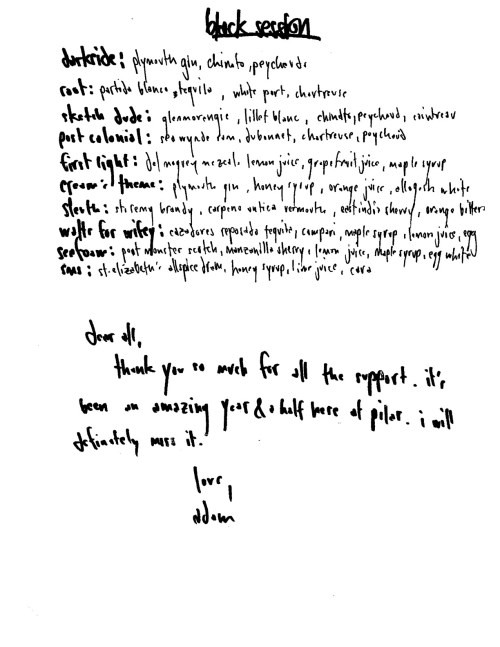 black session
darkside: plymouth gin, chinato, peychauds
root: partida blanco, tequila, white port, chartreuse
sketch dude: glenmorengie, lillet blanc, chinato, peychaud, cointreau
post colonial: sea wynde rum, dubonnet, chartreuse, peychaud
first light: del maguey mezcal. lemon juice, grapefruit juice, maple syrup
eroom's theme: plymouth gin, honey syrup, orange juice, allagash white
sleuth: st. remy brandy, carpano antica vermouth, sherry, orange bitters
waltz for wiley: cazadores reposada tequila, campari, maple syrup, lemon juice, egg
seafoam: peat monster scotch, manzanilla sherry, lemon juice, maple syrup, egg white
: st. elizabeth's allspice dram, honey syrup, lime juice, cava
dear all,
thank you so much for all the support. it's
been an amazing year & a half here at pilar. i will
definately miss it.
love,
adam